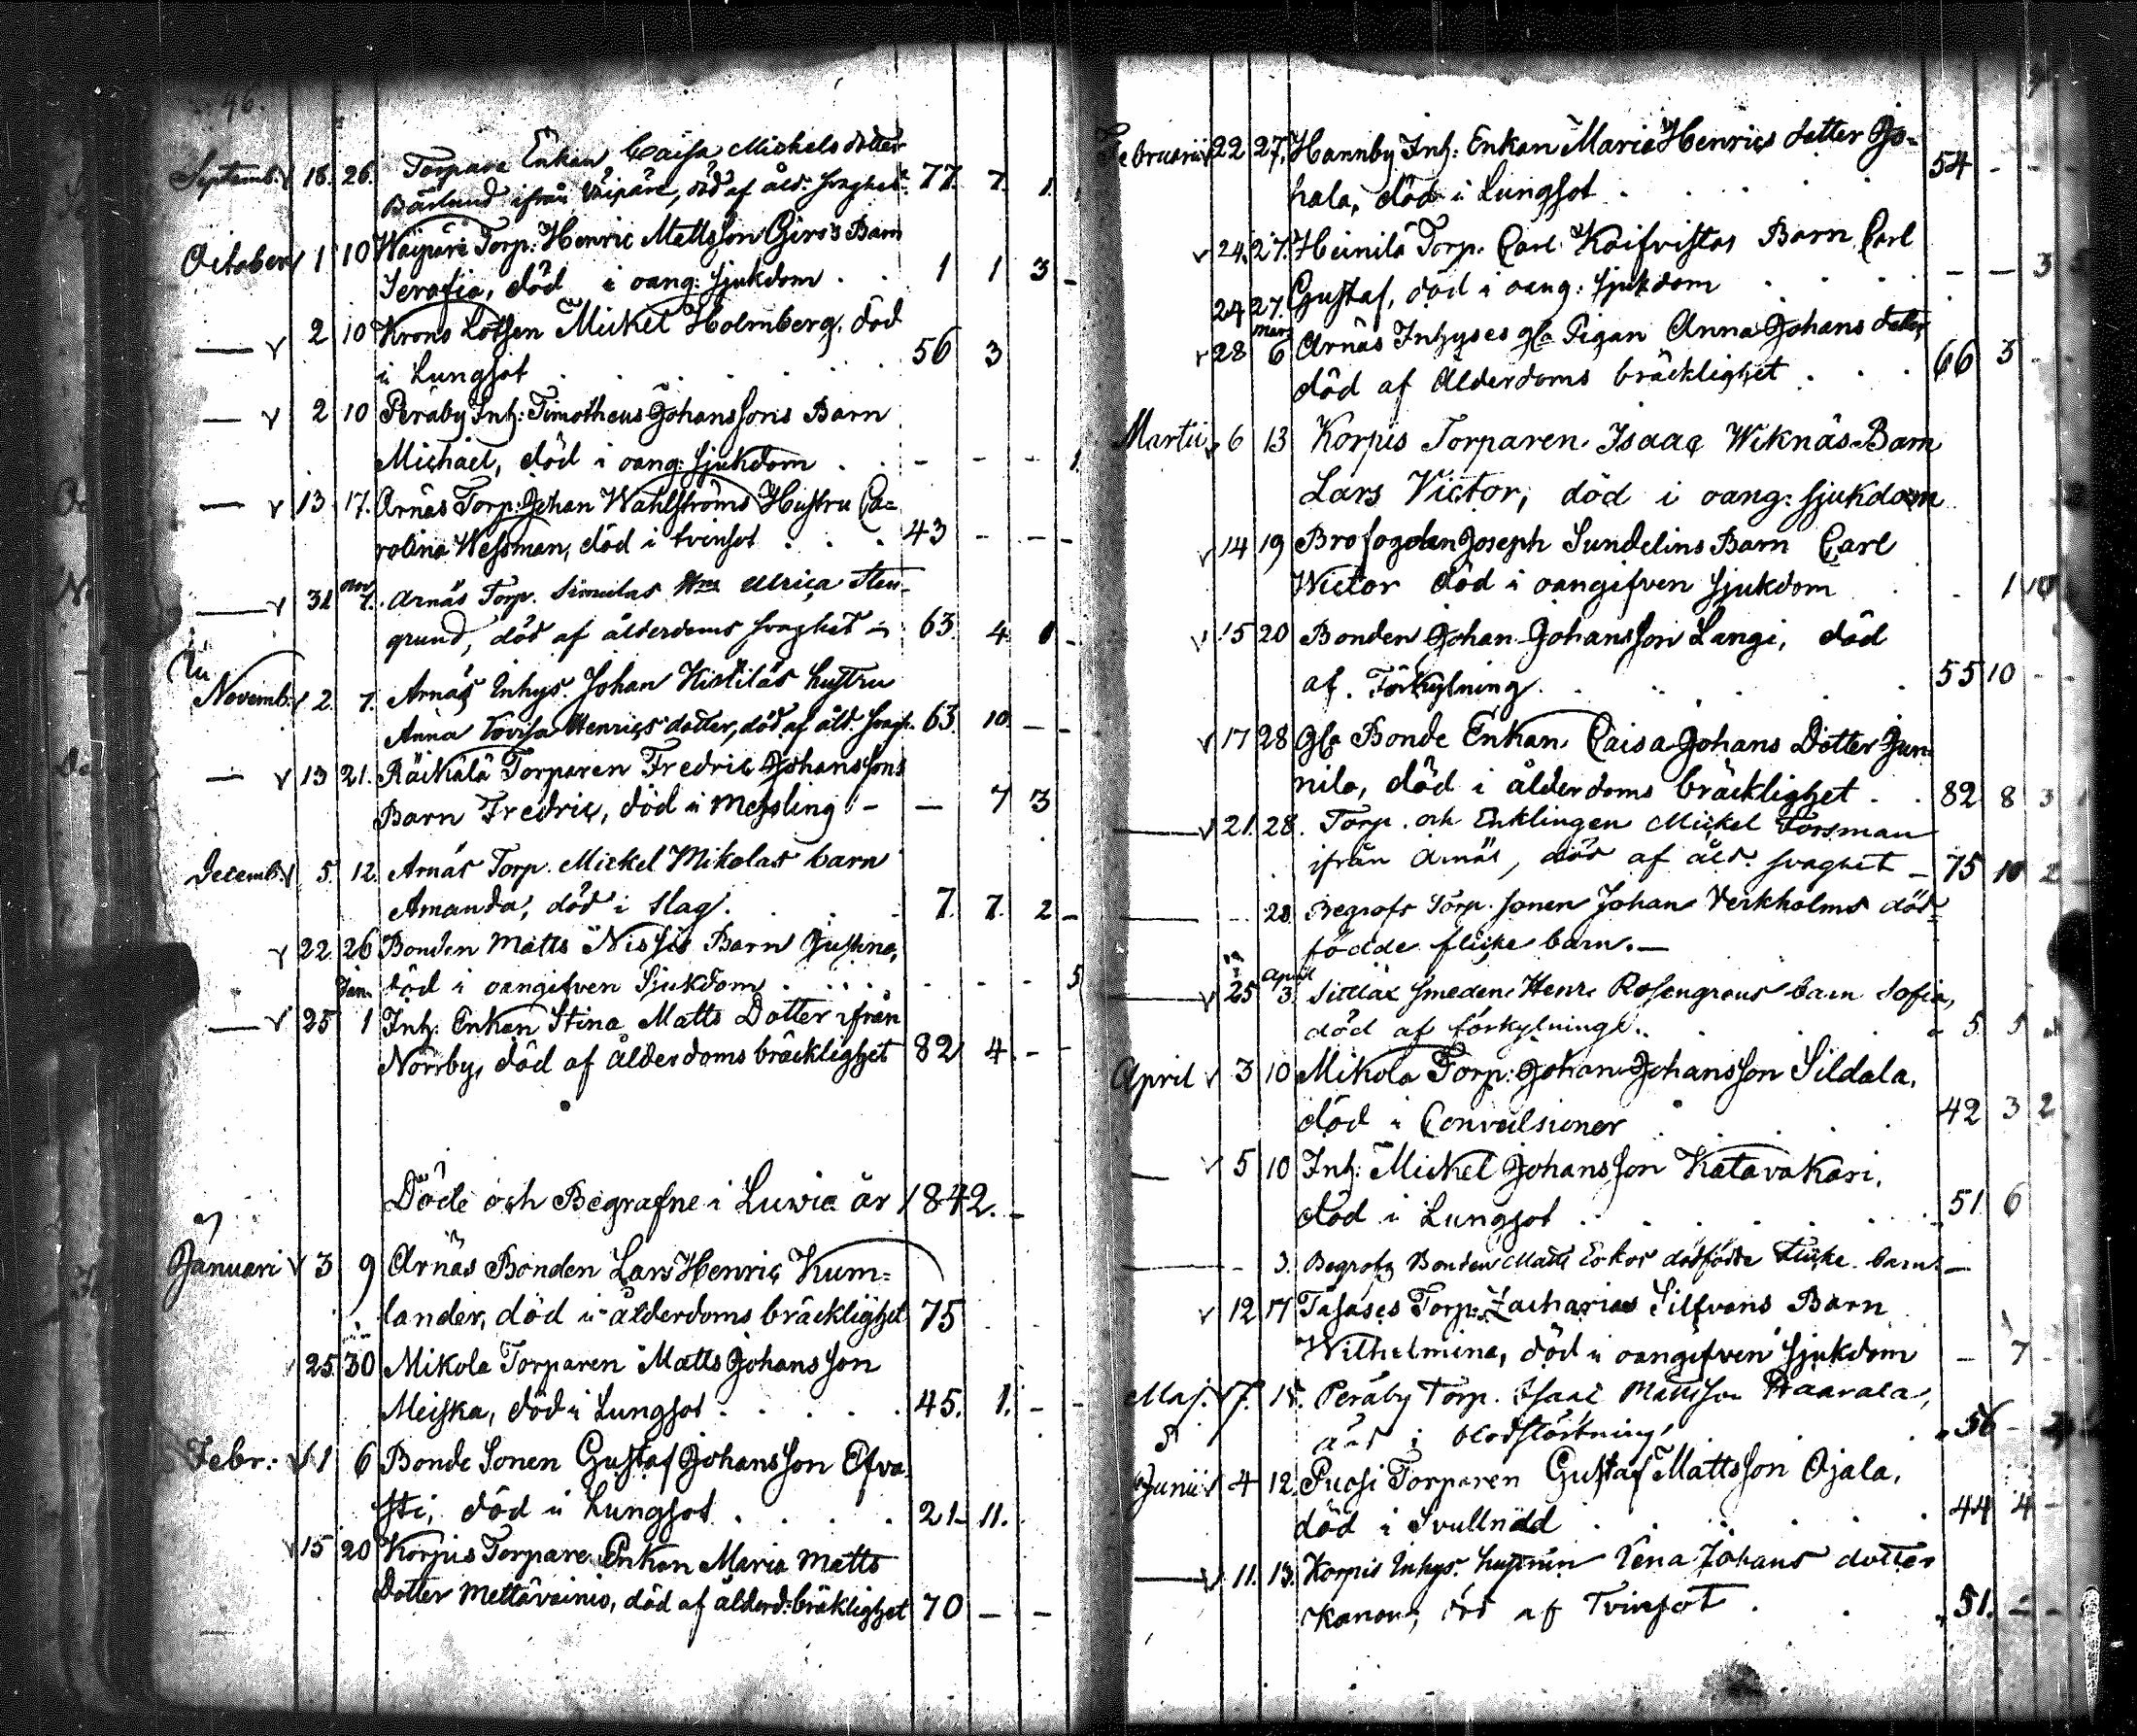 46.
Septemb. v 18. 26. Torpare Enkan Caisa Michels dotter
Bärlund ifrån Väipäre, död af åld: svaghet 77. 7. 1.
October v 1 10 Waipäre Torp: Henric Mattsson Girs's Barn
Serafia, död i oang: sjukdom . . 1 1 3 -
— v 2 10 Krono Lotsen Mickel Holmberg, död
i Lungsot . . . . . . 56 3
— v 2 10 Peräby Inh: Timotheus Johanssons Barn
Michael, död i oang: sjukdom . . - - - 1
— v 13 17. Arnäs Torp: Johan Wahlströms Hustru Ca=
rolina Wessman, död i tvinsot . . . 43 - - -
— v 31 nov 7. Arnäs Torp. Simulas Hru Ulrica Sten-
grund, död af ålderdoms svaghet - 63. 4 1 -
Novemb. v 2. 7. Arnäs Inhys. Johan Kistiläs hustru
Anna Lovisa Henrics dotter, död af åld. svagh. 63. 10 - -
— v 13 21. Räikälä Torparen Fredric Johanssons
Barn Fredric, död i Messling - — 7 3
Decemb. v 5. 12. Arnäs Torp. Mickel Mikolas barn
Amanda, död i slag. . . . 7. 7. 2 -
v 22. 26 Bonden Matts Nissis Barn Justina,
död i oangifven Sjukdom . . . . - - - 5
— v 25 Jan. 1 Inh. Enkan Stina Matts Dotter ifrån
Norrby, död af ålderdoms bräcklighet 82 4. - -
Döde och Begrafne i Luvia år 1842. -
Januari v 3 9 Arnäs Bonden Lars Henric Kum=
lander, död i ålderdoms bräcklighet 75
25. 30 Mikola Torparen Matts Johansson
Meiska, död i Lungsot . . . . . 45. 1. - -
Febr: v 1 6 Bonde Sonen Gustaf Johansson Efva
sti, död i Lungsot . . . . 21. 11.
v 15 20 Korpis Torpare Enkan Maria Matts
Dotter Mettäväinio, död af ålderd: bräklighet 70 — —
Februarii v 22 27. Hannby Inh: Enkan Maria Henrics dotter Jo=
hala, död i Lungsot . . . . 54 - -
v 24. 27. Heinilä Torp. Carl Koifvistos Barn Carl
24 27. Gustaf, död i oang: sjukdom . . . — — 3
v 28 mars 6 Arnäs Inhyses gla Pigan Anna Johans dotter,
död af Ålderdoms bräcklighet . . . 66 3 -
Martii v 6 13 Korpis Torparen Isaac Wiknäs Barn
Lars Victor, död i oang: sjukdom
v 14 19 Brofogden Joseph Sundelins Barn Carl
Wictor död i oangifven sjukdom . . 1 10
v 15 20 Bonden Johan Johansson Langi, död
af Förkylning . . . . . 55 10 - -
v 17 28 Gla Bonde Enkan Caisa Johans Dotter Jun
nila, död i ålderdoms bräcklighet . . 82 8 3 1
— v 21. 28. Torp. och Enklingen Mickel Forsman
ifrån Arnäs, död af åld: svaghet - 75 10 2 -
— - 28 Begrofs Torp. sonen Johan Verkholms död=
födde flicke barn. —
— v 25 April 3. Sittlax smeden Henr. Rosengrens barn Sofia,
död af förkylning . . . 5. 5
April v 3 10 Mikola Torp: Johan Johansson Sildala,
död i Convulsioner . . . . 42 3 2
— v 5 10 Inh: Mickel Johansson Katavakari,
död i Lungsot . . . . . . 51 6
— - 3. Begrofs Bonden Matts Eskos dödfödde flicke barn. —
v 12 17 Tasases Torp: Zacharias Silfvans Barn
Wilhelmina, död i oangifven sjukdom — 7 - -
Maj. v 7. 15. Peräby Torp. Isaac Mattsson Haarala,
död i blodstörtning . . . 56 -
Junii v 4 12. Puosi Torparen Gustaf Mattsson Ojala,
död i Svullnad . . . . . 44 4 -
— v 11. 13. Korpis Inhys. hustrun Lena Johans dotter
Kanon, död af Tvinsot . . . 51. - -